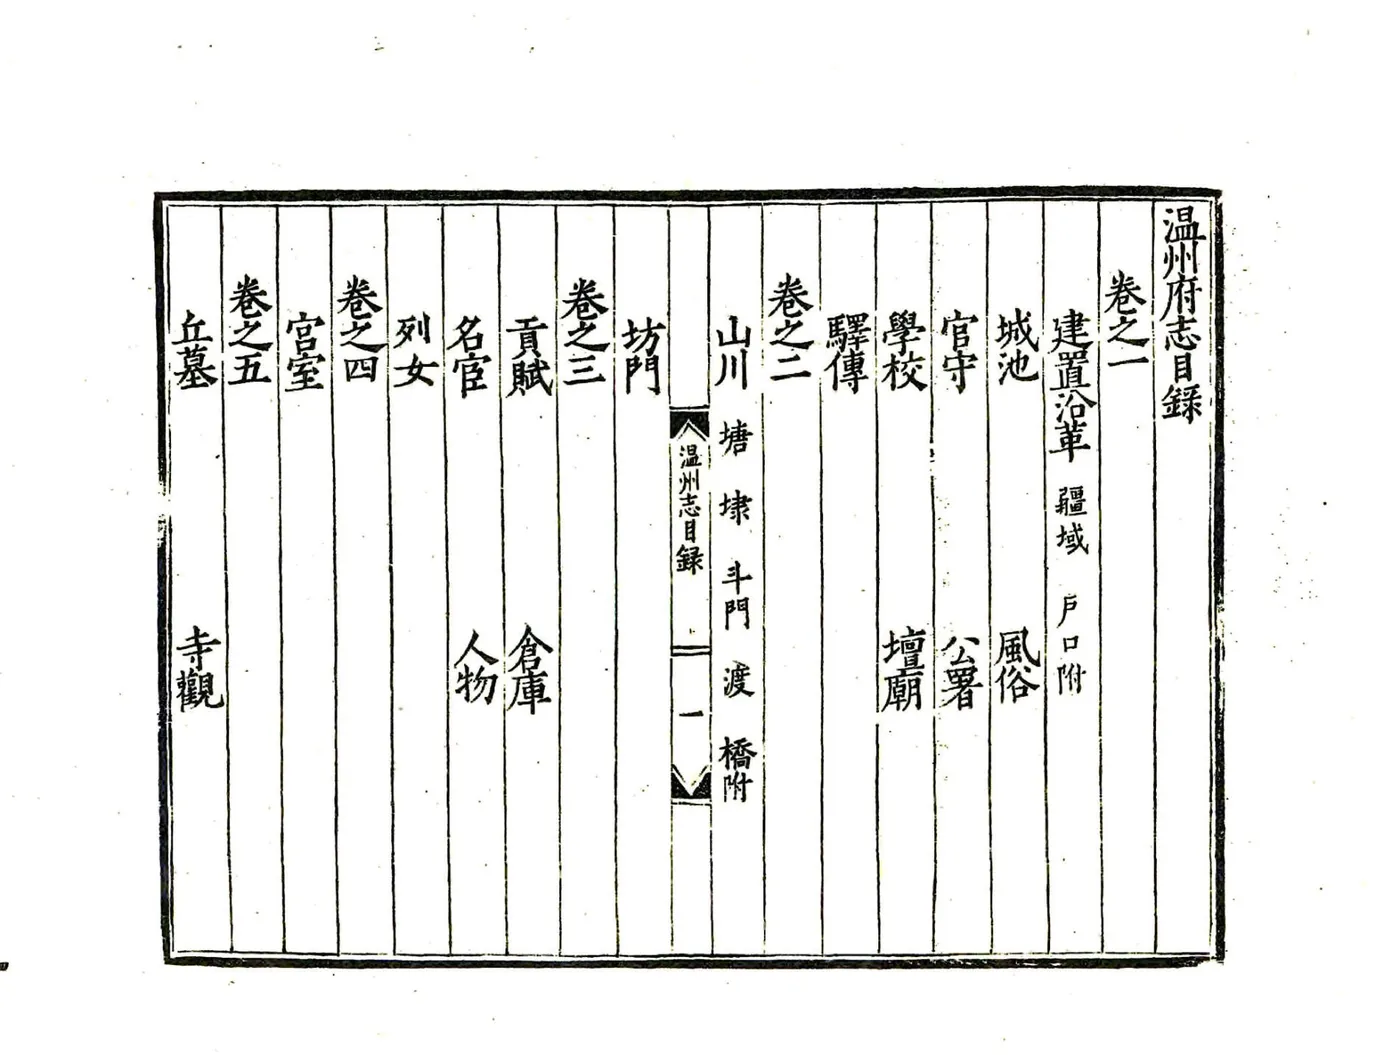 温州府志目録
卷之一
建置沿革 疆域 戶口附
城池 風俗
官守 公署
學校 壇廟
驛傳
卷之二
山川 塘 埭 斗門 渡 橋附
温州志目録 一
坊門
卷之三
貢賦 倉庫
名宦 人物
列女
卷之四
宮室
卷之五
丘墓 寺觀